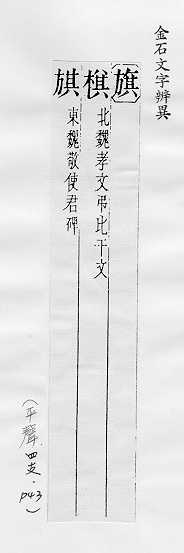 金石文字辨異
〔旗〕
棋
北魏孝文弔比干文
東魏敬使君碑
(平聲 四支·p43)